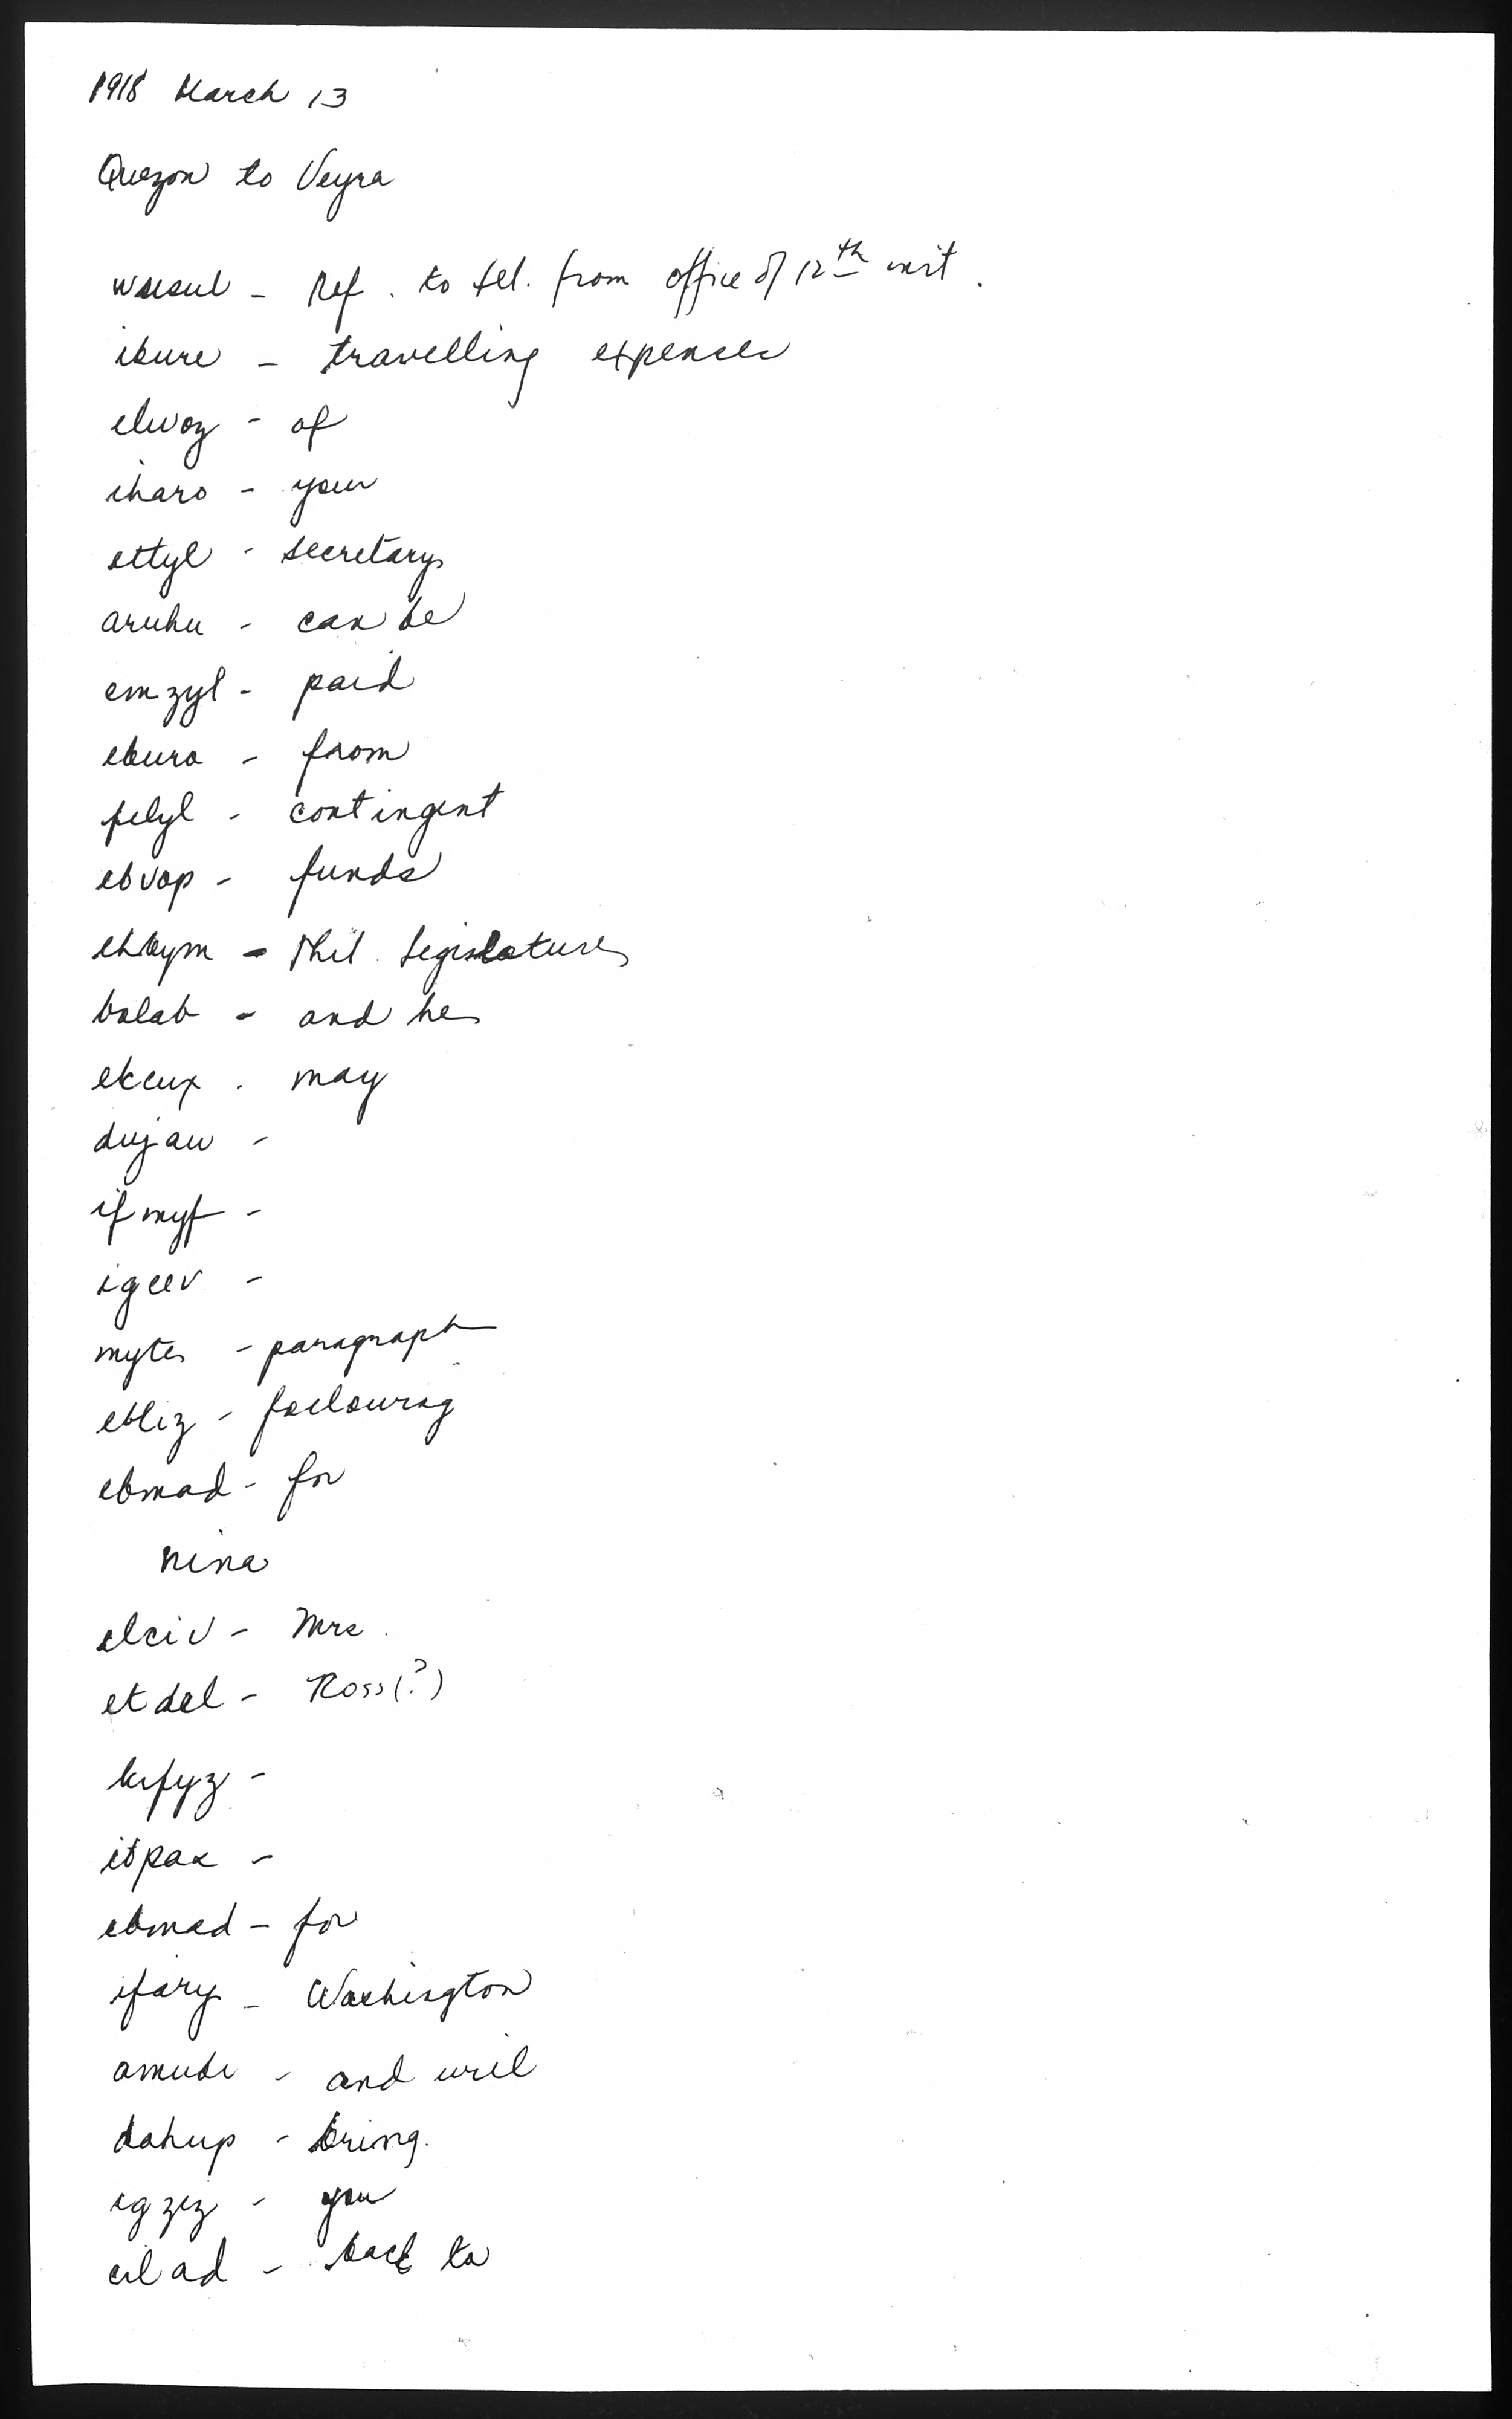 1918 March 13
Quezon to Veyra
wuesul - Ref. to tel. from office of 12th inst.
ibure - travelling expenses
elwoz - of
iharo - your
ettyl - secretary
aruhu - can be
emzyl - paid
ebura - from
felyl - contingent
ebvop - funds
ehbym - Phil. Legislature
balab - and he
ekcux . may
dujaw -
ifmyf -
igeev -
myte - paragraph
ebliz - following
ebmad - for
nina
elciv - Mrs.
etdel - Ross(?)
kifyz -
itpax -
ebmad - for
ifary - Washington
amude - and will
dahup - bring.
igziz - you
cilad - back to